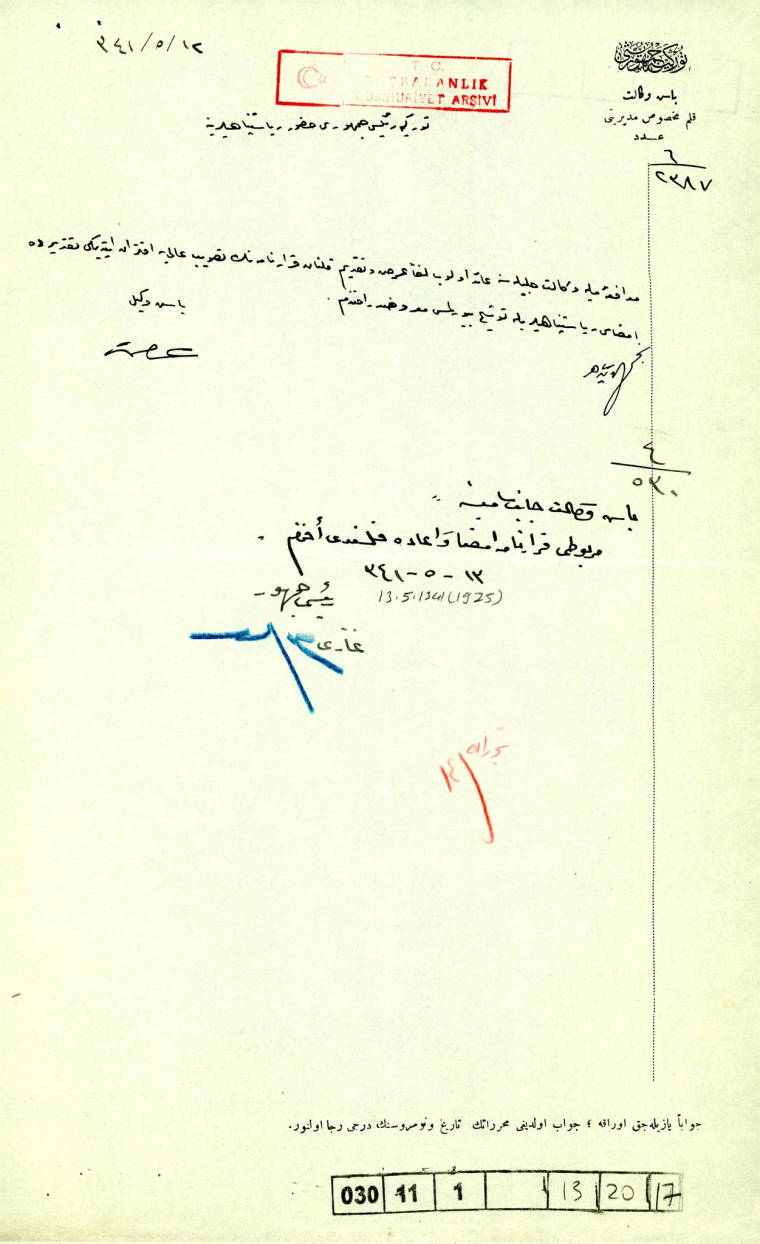 ١٢/٥/٣٤١
T. C.
BAŞBAKANLIK
CUMHURİYET ARŞİVİ
توركيه جمهوريتى
باش وكالت
قلم مخصوص مديريتى
عدد
٦
٢٣٨٧
توركيه رئيس جمهورى حضور رياستپناهيلرينه
مدافعۀ مليه وكالت جليله سنه عائد اولوب لفاً عرض و تقديم قلنان قرارنامه نك تصويب عاليه اقتران ايتديكى تقديرده
امضاى رياستپناهيلريله توشيح بيورلمسى معروضدر افندم .
باش وكيل
عصمت
٤
٥٣٠
باش وكالت جانب ساميسنه
مربوطى قرارنامه امضا و اعاده قلندى افندم .
١٣ - ٥ - ٣٤١
13.5.1341 (1925)
رئيس جمهور
غازى
جواباً يازيله جق اوراقه ، جواب اولديغى محرراتك تاريخ ونومروسنك درجى رجا اولنور .
030 11 1 13 20 17